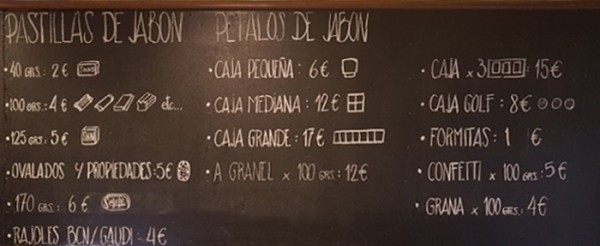 PASTILLAS DE JABON
• 40 GRS.: 2 €
• 100 GRS.: 4 € etc...
• 125 GRS.: 5 €
• OVALADOS Y PROPIEDADES: 5 €
• 170 GRS.: 6 €
• RAJOLES BCN/GAUDI: 4 €
PETALOS DE JABON
• CAJA PEQUEÑA: 6 €
• CAJA MEDIANA: 12 €
• CAJA GRANDE: 17 €
• A GRANEL x 100 GRS: 12 €
• CAJA x 3: 15 €
• CAJA GOLF: 8 €
• FORMITAS: 1 €
• CONFETTI x 100 GRS: 5 €
• GRANA x 100 GRS.: 4 €